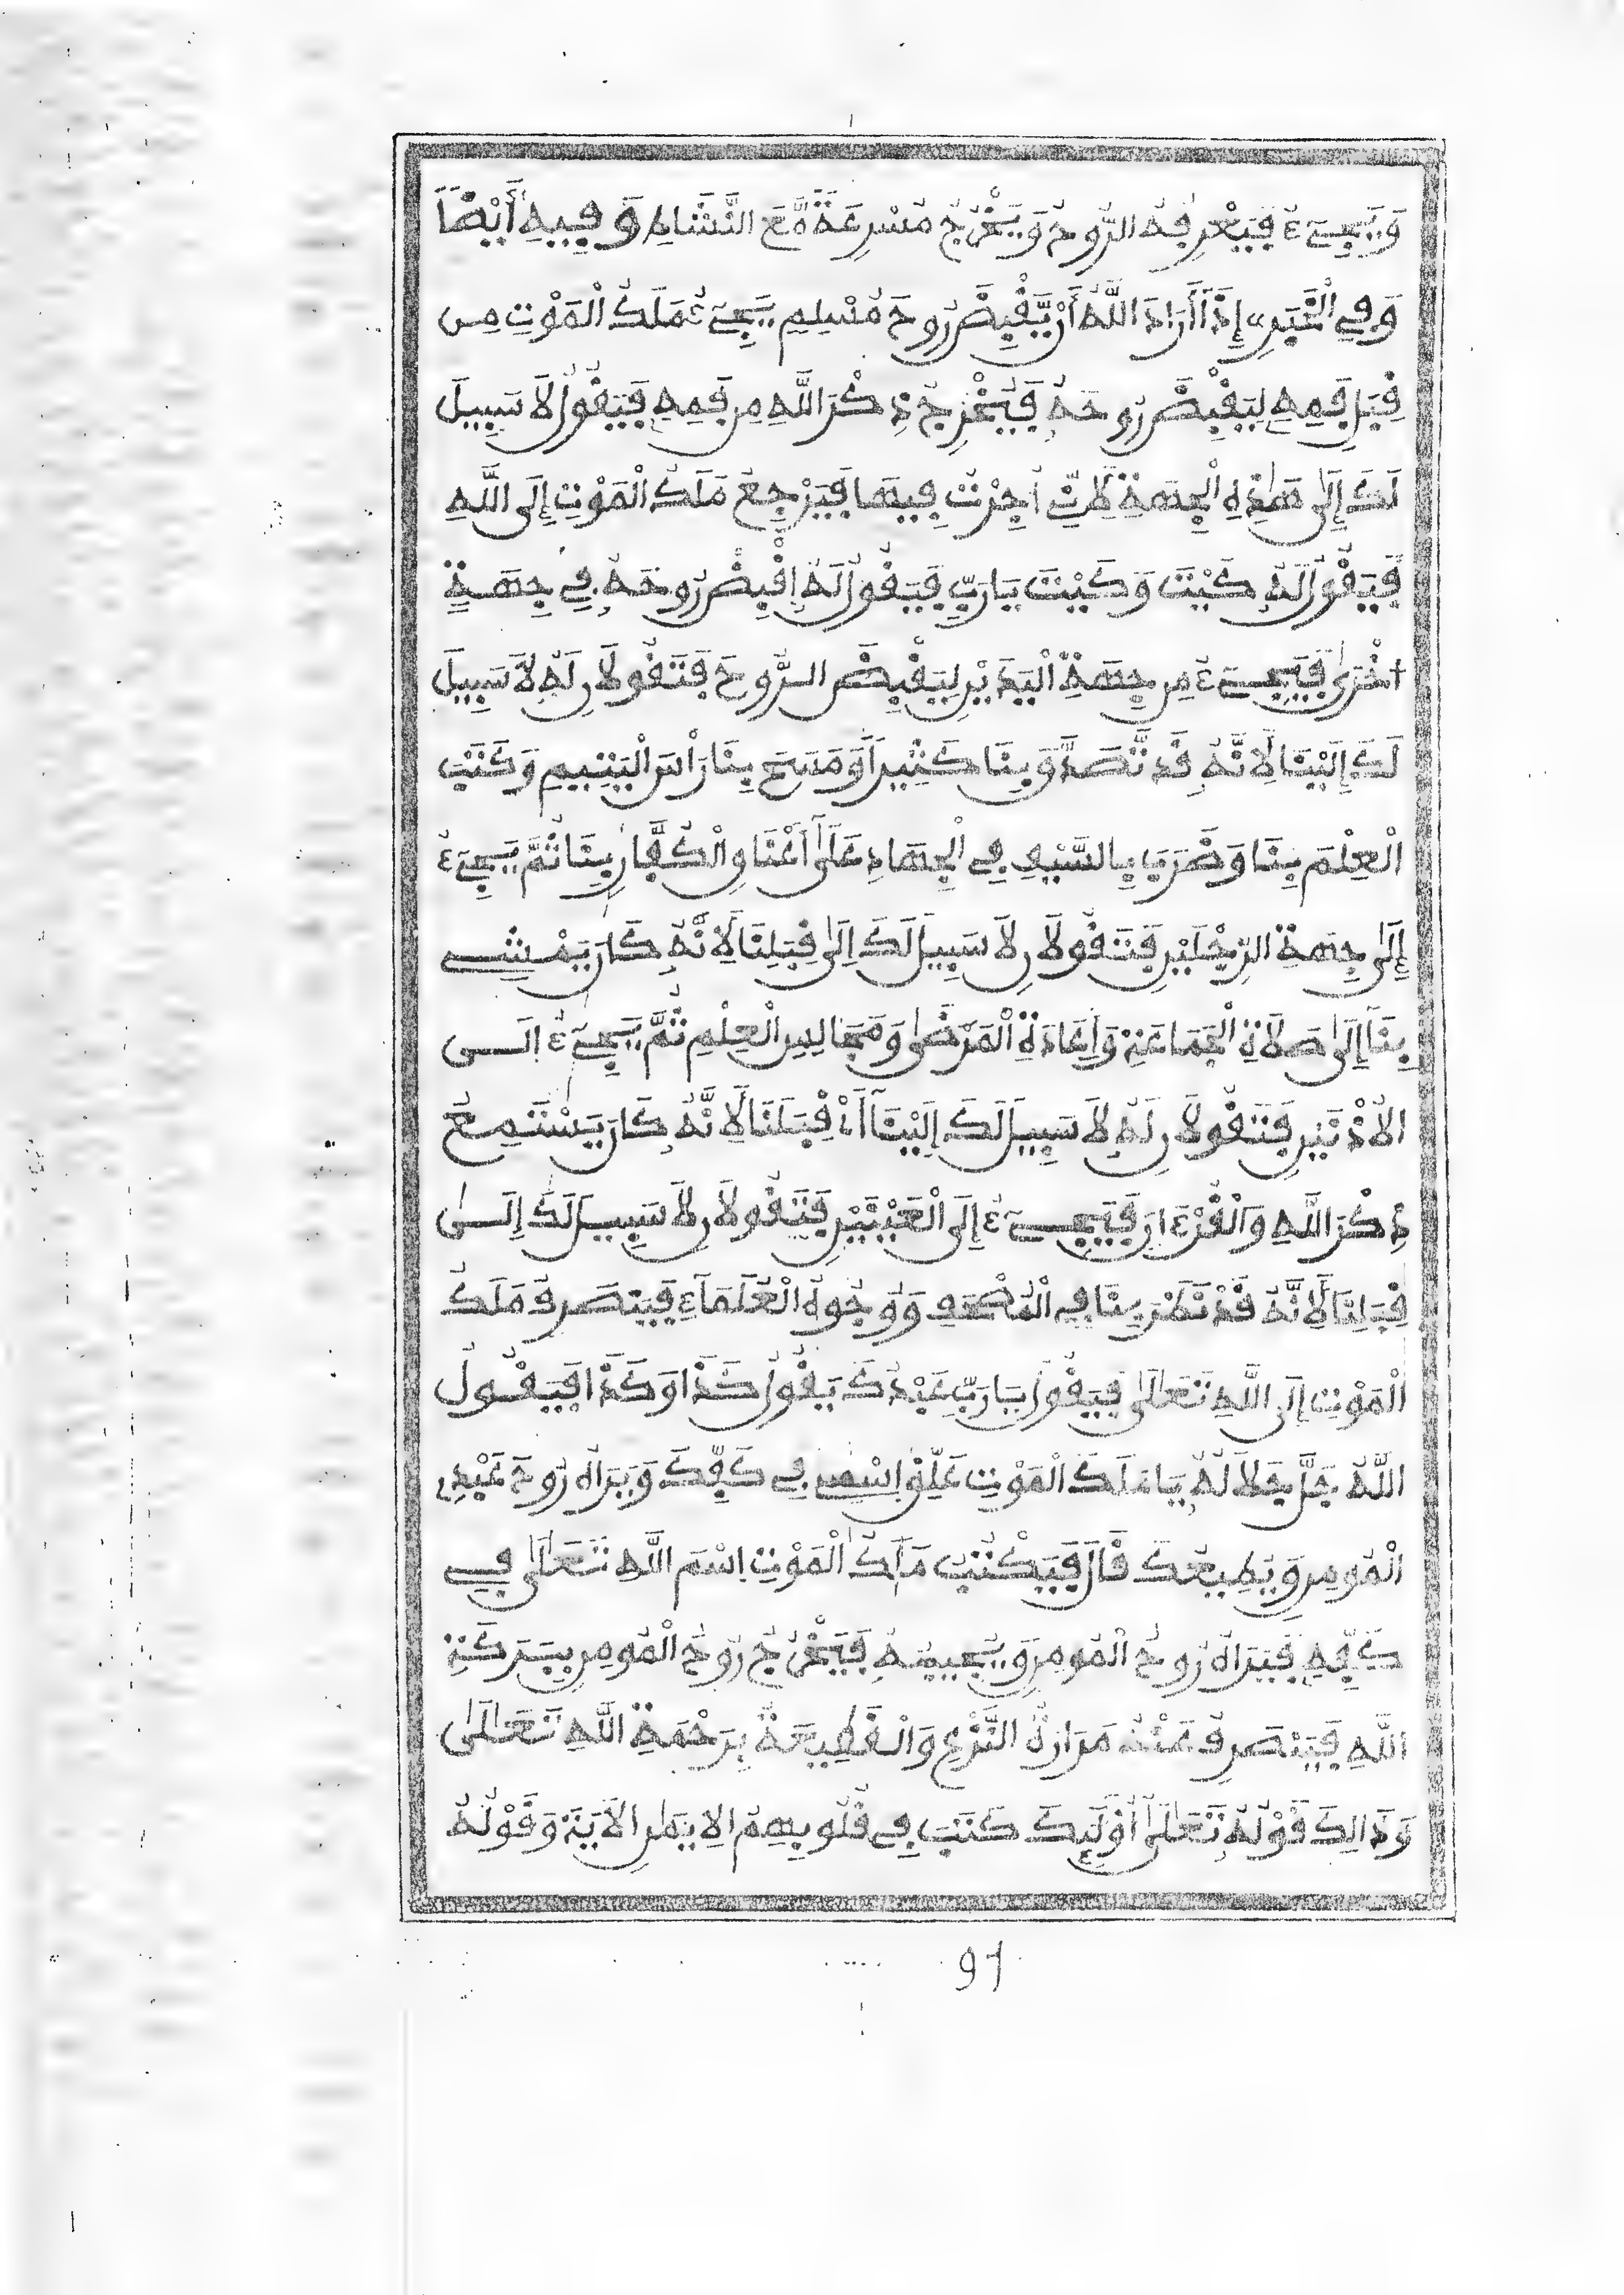 وَيَجِيءُ فَيَعْرِفُهُ الرُّوحُ وَيَخْرُجُ مُسْرِعَةً مَّعَ النَّشَاطِ وَفِيهِ أَيْضًا
وَفِي الْخَبَرِ إِذَا أَرَادَ اللَّهُ أَن يَّقْبِضَ رُوحَ مُسْلِمٍ يَجِيءُ مَلَكُ الْمَوْتِ مِن
قِبَلِ فَمِهِ لِيَقْبِضَ رُوحَهُ فَيَخْرُجُ ذِكْرُ اللَّهِ مِن فَمِهِ فَيَقُولُ لَا سَبِيلَ
لَكَ إِلَى هَذِهِ الْجِهَةِ أُجْرِتُ فِيهَا فَيَرْجِعُ مَلَكُ الْمَوْتِ إِلَى اللَّهِ
فَيَقُولُ لَهُ كَيْتَ وَكَيْتَ يَا رَبِّ فَيَقُولُ لَهُ اِقْبِضْ رُوحَهُ فِي جِهَةٍ
أُخْرَى فَيَجِيءُ مِن جِهَةِ الْيَدَيْنِ لِيَقْبِضَ الرُّوحَ فَتَقُولَانِ لَهُ لَا سَبِيلَ
لَكَ إِلَيْنَا لِأَنَّهُ قَدْ تَّصَدَّقَ بِنَا كَثِيرًا وَمَسَحَ بِنَا رَأْسَ الْيَتِيمِ وَكَتَبَ
الْعِلْمَ بِنَا وَضَرَبَ بِالسَّيْفِ فِي الْجِهَادِ عَلَى أَعْنَاقِ الْكُفَّارِ بِنَا ثُمَّ يَجِيءُ
إِلَى جِهَةِ الرِّجْلَيْنِ فَتَقُولَانِ لَا سَبِيلَ لَكَ إِلَى قِبَلِنَا لِأَنَّهُ كَانَ يَمْشِي
بِنَا إِلَى صَلَاةِ الْجَمَاعَةِ وَإِعَادَةِ الْمَرْضَى وَمَجَالِسِ الْعِلْمِ ثُمَّ يَجِيءُ إِلَى
الْأُذْنَيْنِ فَتَقُولَانِ لَهُ لَا سَبِيلَ لَكَ إِلَيْنَا قِبَلَنَا لِأَنَّهُ كَانَ يَسْتَمِعُ
ذِكْرَ اللَّهِ وَالْقُرْءَانَ فَيَجِيءُ إِلَى الْعَيْنَيْنِ فَتَقُولَانِ لَا سَبِيلَ لَكَ إِلَى
قِبَلِنَا لِأَنَّهُ قَدْ نَظَرَ بِنَا فِي الْمُصْحَفِ وَوُجُوهِ الْعُلَمَاءِ فَيَنْصَرِفُ مَلَكُ
الْمَوْتِ إِلَى اللَّهِ تَعَالَى فَيَقُولُ يَا رَبِّ عَبْدُكَ يَقُولُ كَذَا وَكَذَا فَيَقُولُ
اللَّهُ جَلَّ جَلَالُهُ يَا مَلَكَ الْمَوْتِ عَلِّقْ اِسْمِي فِي كَفِّكَ وَيَرَاهُ رُوحُ عَبْدِي
الْمُومِنِ وَيُطِيعُكَ قَالَ فَيَكْتُبُ مَلَكُ الْمَوْتِ اِسْمَ اللَّهِ تَعَالَى فِي
كَفِّهِ فَيَرَاهُ رُوحُ الْمُومِنِ وَيُجِيبُهُ فَيَخْرُجُ رُوحُ الْمُومِنِ بِبَرَكَةِ
اللَّهِ فَيَنْصَرِفُ عَنْهُ مَرَارَةُ النَّزْعِ وَالْقَطِيعَةُ بِرَحْمَةِ اللَّهِ تَعَالَى
وَذَالِكَ قَوْلُهُ تَعَالَى أُوْلَئِكَ كَتَبَ فِي قُلُوبِهِمُ الْإِيمَانَ الْآيَةَ وَقَوْلُهُ
97